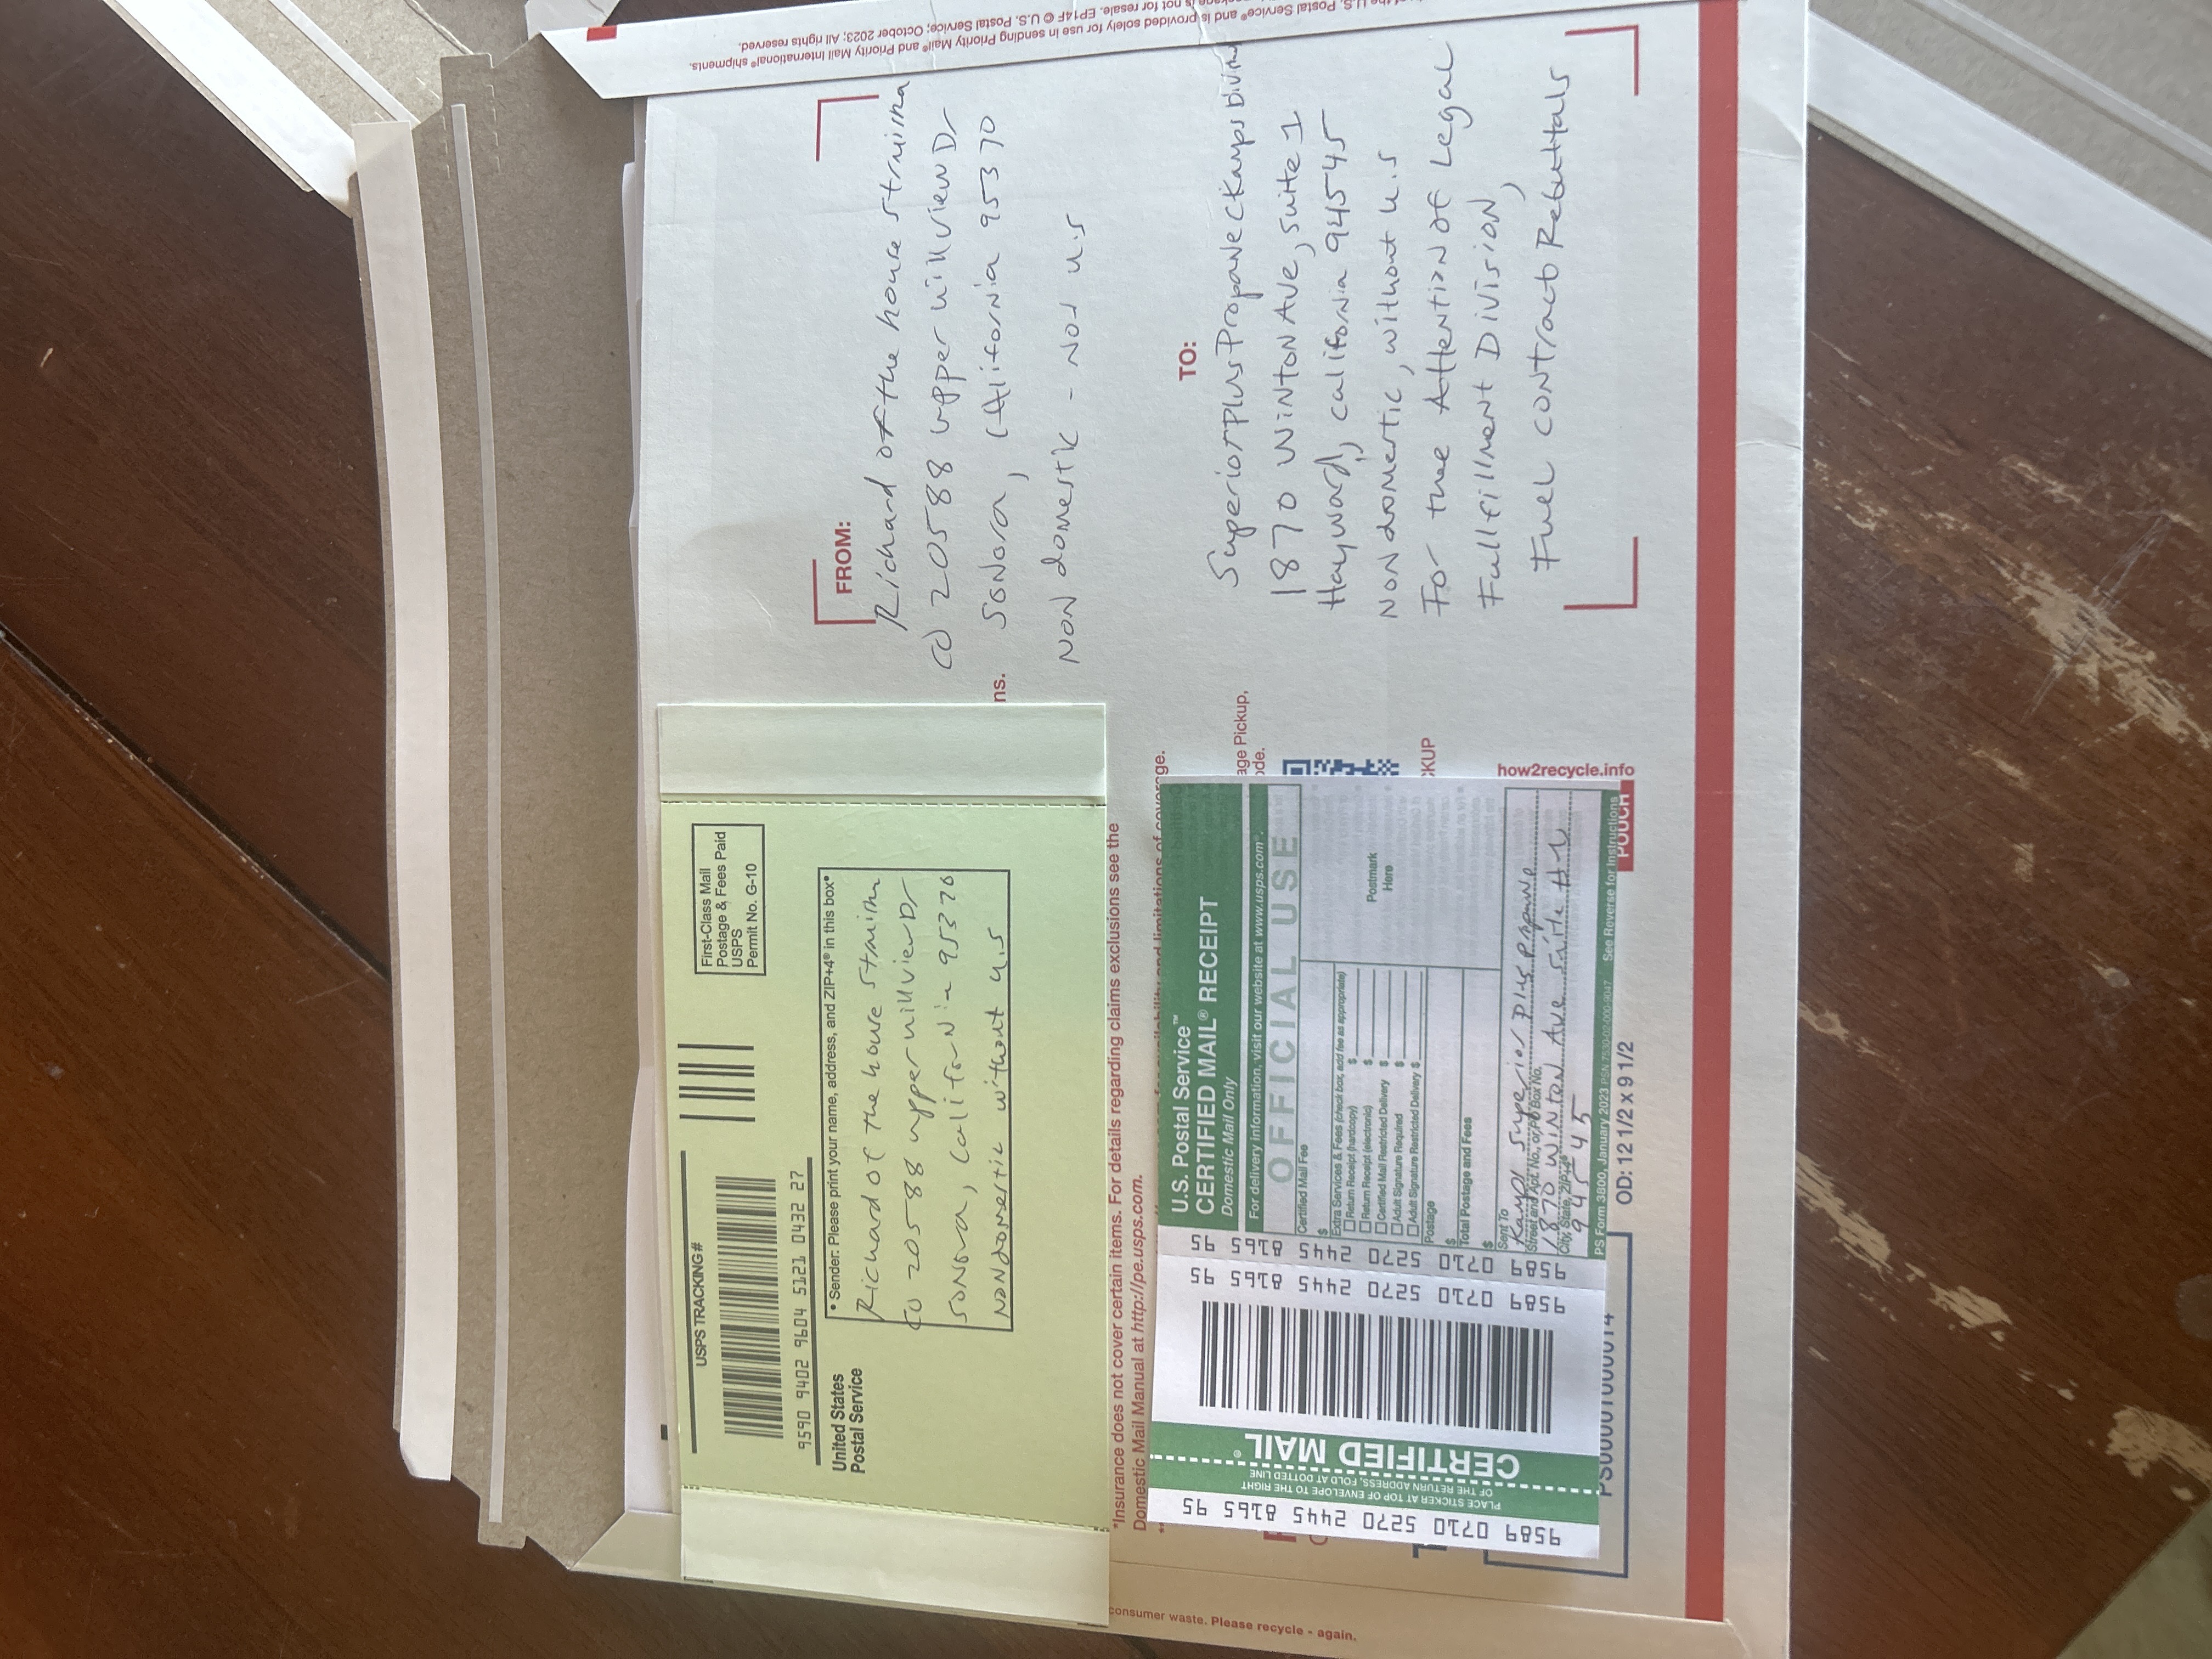 USPS TRACKING #
9590 9402 9604 5121 0432 27
First-Class Mail
Postage & Fees Paid
USPS
Permit No. G-10
United States
Postal Service
• Sender: Please print your name, address, and ZIP+4® in this box•
Richard of the house
20588 upper hillview Dr
SONora, California 95370
NoN domestic without U.S
FROM:
Richard of the house
20588 upper hillview Dr
SoNora, CAlifornia 95370
NON domestic - Not U.S
ns.
*Insurance does not cover certain items. For details regarding claims exclusions see the
Domestic Mail Manual at http://pe.usps.com.
availability and limitations of coverage.
age Pickup,
ode.
CKUP
9589 0710 5270 2445 8165 95
PLACE STICKER AT TOP OF ENVELOPE TO THE RIGHT
OF THE RETURN ADDRESS, FOLD AT DOTTED LINE
CERTIFIED MAIL®
9589 0710 5270 2445 8165 95
9589 0710 5270 2445 8165 95
U.S. Postal Service™
CERTIFIED MAIL® RECEIPT
Domestic Mail Only
For delivery information, visit our website at www.usps.com®.
OFFICIAL USE
Certified Mail Fee
$
Extra Services & Fees (check box, add fee as appropriate)
Return Receipt (hardcopy) $
Return Receipt (electronic) $
Certified Mail Restricted Delivery $
Adult Signature Required $
Adult Signature Restricted Delivery $
Postmark
Here
Postage
$
Total Postage and Fees
$
Sent To
Kamps Superior Plus propane
Street and Apt. No., or PO Box No.
1870 WINTON Ave Suite #1
City, State, ZIP+4®
94545
PS Form 3800, January 2023 PSN 7530-02-000-9047 See Reverse for Instructions
PS00001000014
OD: 12 1/2 x 9 1/2
POUCH
how2recycle.info
TO:
Superior Plus Propane CKamps
1870 WiNtoN Ave, suite 1
Hayward, california 94545
NoN domestic, without U.S
For thee AttentioN of Legal
Fullfillment DivisioN,
Fuel contract Rebuttals
consumer waste. Please recycle - again.
of the U.S. Postal Service® and is provided solely for use in sending Priority Mail® and Priority Mail International® shipments.
is not for resale. EP14F © U.S. Postal Service; October 2023; All rights reserved.